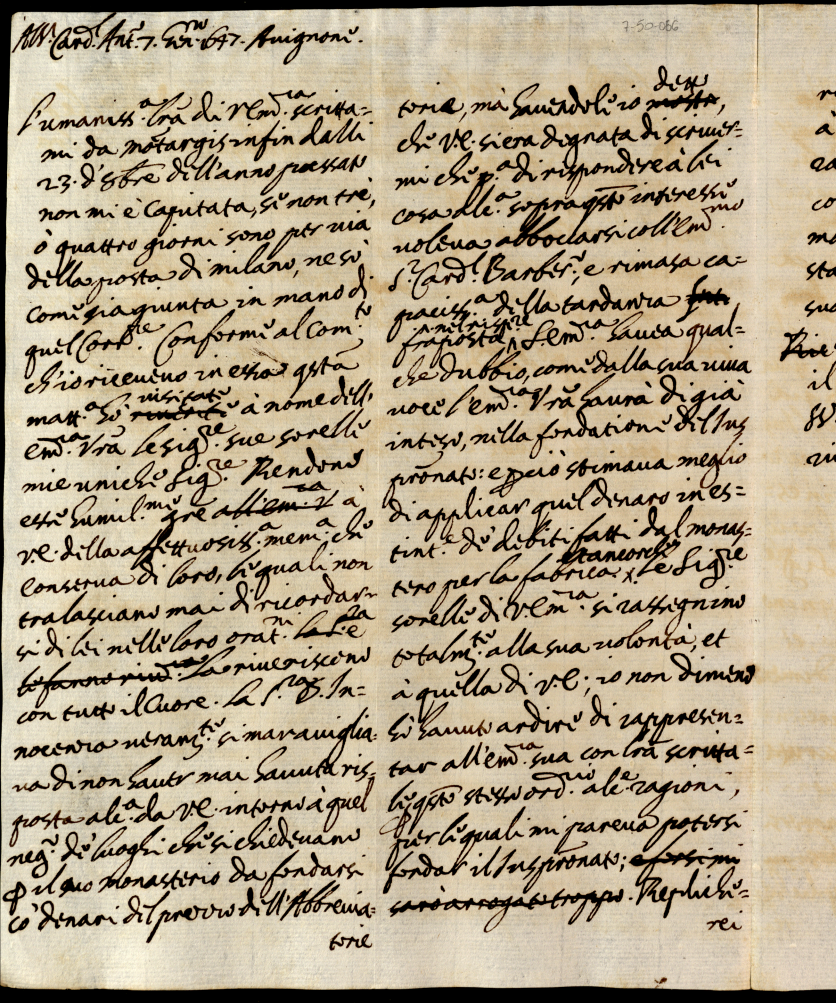 All'Em. Card. Ant.° 7. Gen.ro 1647. Avignone.
7-50-066
L'umaniss.a lrã di V.Em.za scritta=
mi da mõtargis infin dalli
23. d'8bre dell'anno passato
non mi è capitata, se non trè,
ò quattro giorni sono per via
della posta di milano, ne sò
come già giunta in mano di
quel Corr.re Conforme al com.to
ch'io ricevevo in essa q̃sta
matt.a hò visitate riverite à nome dell'
em.za Vrã le sig.re sue sorelle
mie uniche sig.re Rendono
esse humil.me gr̃e all'em.za V. à
V.E. della affettuosiss.a mem.a che
conserva di loro, le quali non
tralasciano mai di ricordar=
si di lei nelle loro orat.ni la S.ra
le fanno riv.za La riveriscono
con tutto il Cuore. La S.ra D. In=
nocenza veram.te si maraviglia=
va di non haver mai havuta ris=
posta alc.a da V.E. intorno à quel
neg.° de' luoghi che si chiedevano
ꝑ il suo monasterio da fondarsi
cõ denari del prezzo dell'Abbrevia=
torie
torie, mà havendole io detto mostro,
che V.E. si era degnata di scriver=
mi che p.a di rispondere à lei
cosa alc.a sopra q̃sto interesse
voleva abboccarsi coll'Em.mo
S.r Card.l Barber.°, e rimasa ca=
pacissi.a della tardanza
fraposta. S.em.za havea qual=
che dubbio, come dalla sua viva
voce l'em.za Vrã haurà di già
inteso, nella fondatione del Jus
pron̄ato: e ꝑciò stimava meglio
di applicar quel denaro in es=
tint.e de' debiti fatti dal monas=
tero per la fabrica, ancorche le Sig.re
sorelle di V.Em.za si rassegnino
totalm.te alla sua volontà, et
à quella di V.E.; io non dimeno
hò havuto ardire di rappresen=
tar all'em.za sua con lrã scritta=
le q̃sto stesso ord.rio alc.e ragioni,
per le quali mi pareva potersi
fondar il Juspron̄ato; e forsi mi
sarò arrogato troppo. Repliche=
rei